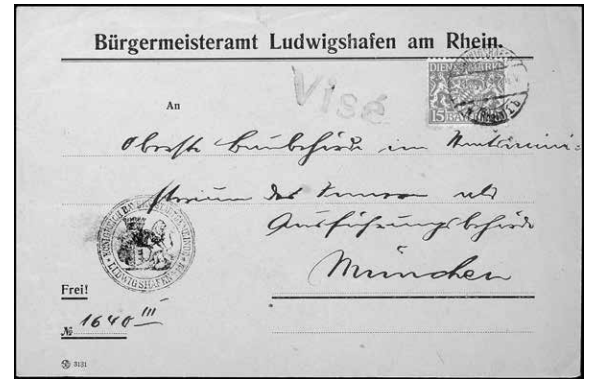 Bürgermeisteramt Ludwigshafen am Rhein.
Visé
DIENSTMARKE
15 BAYERN
An
Oberste Baubehörde im Staatsmini-
sterium des Innern als
Ausführungsbehörde
München
LUDWIGSHAFEN
Frei!
№ 1640 III
3131